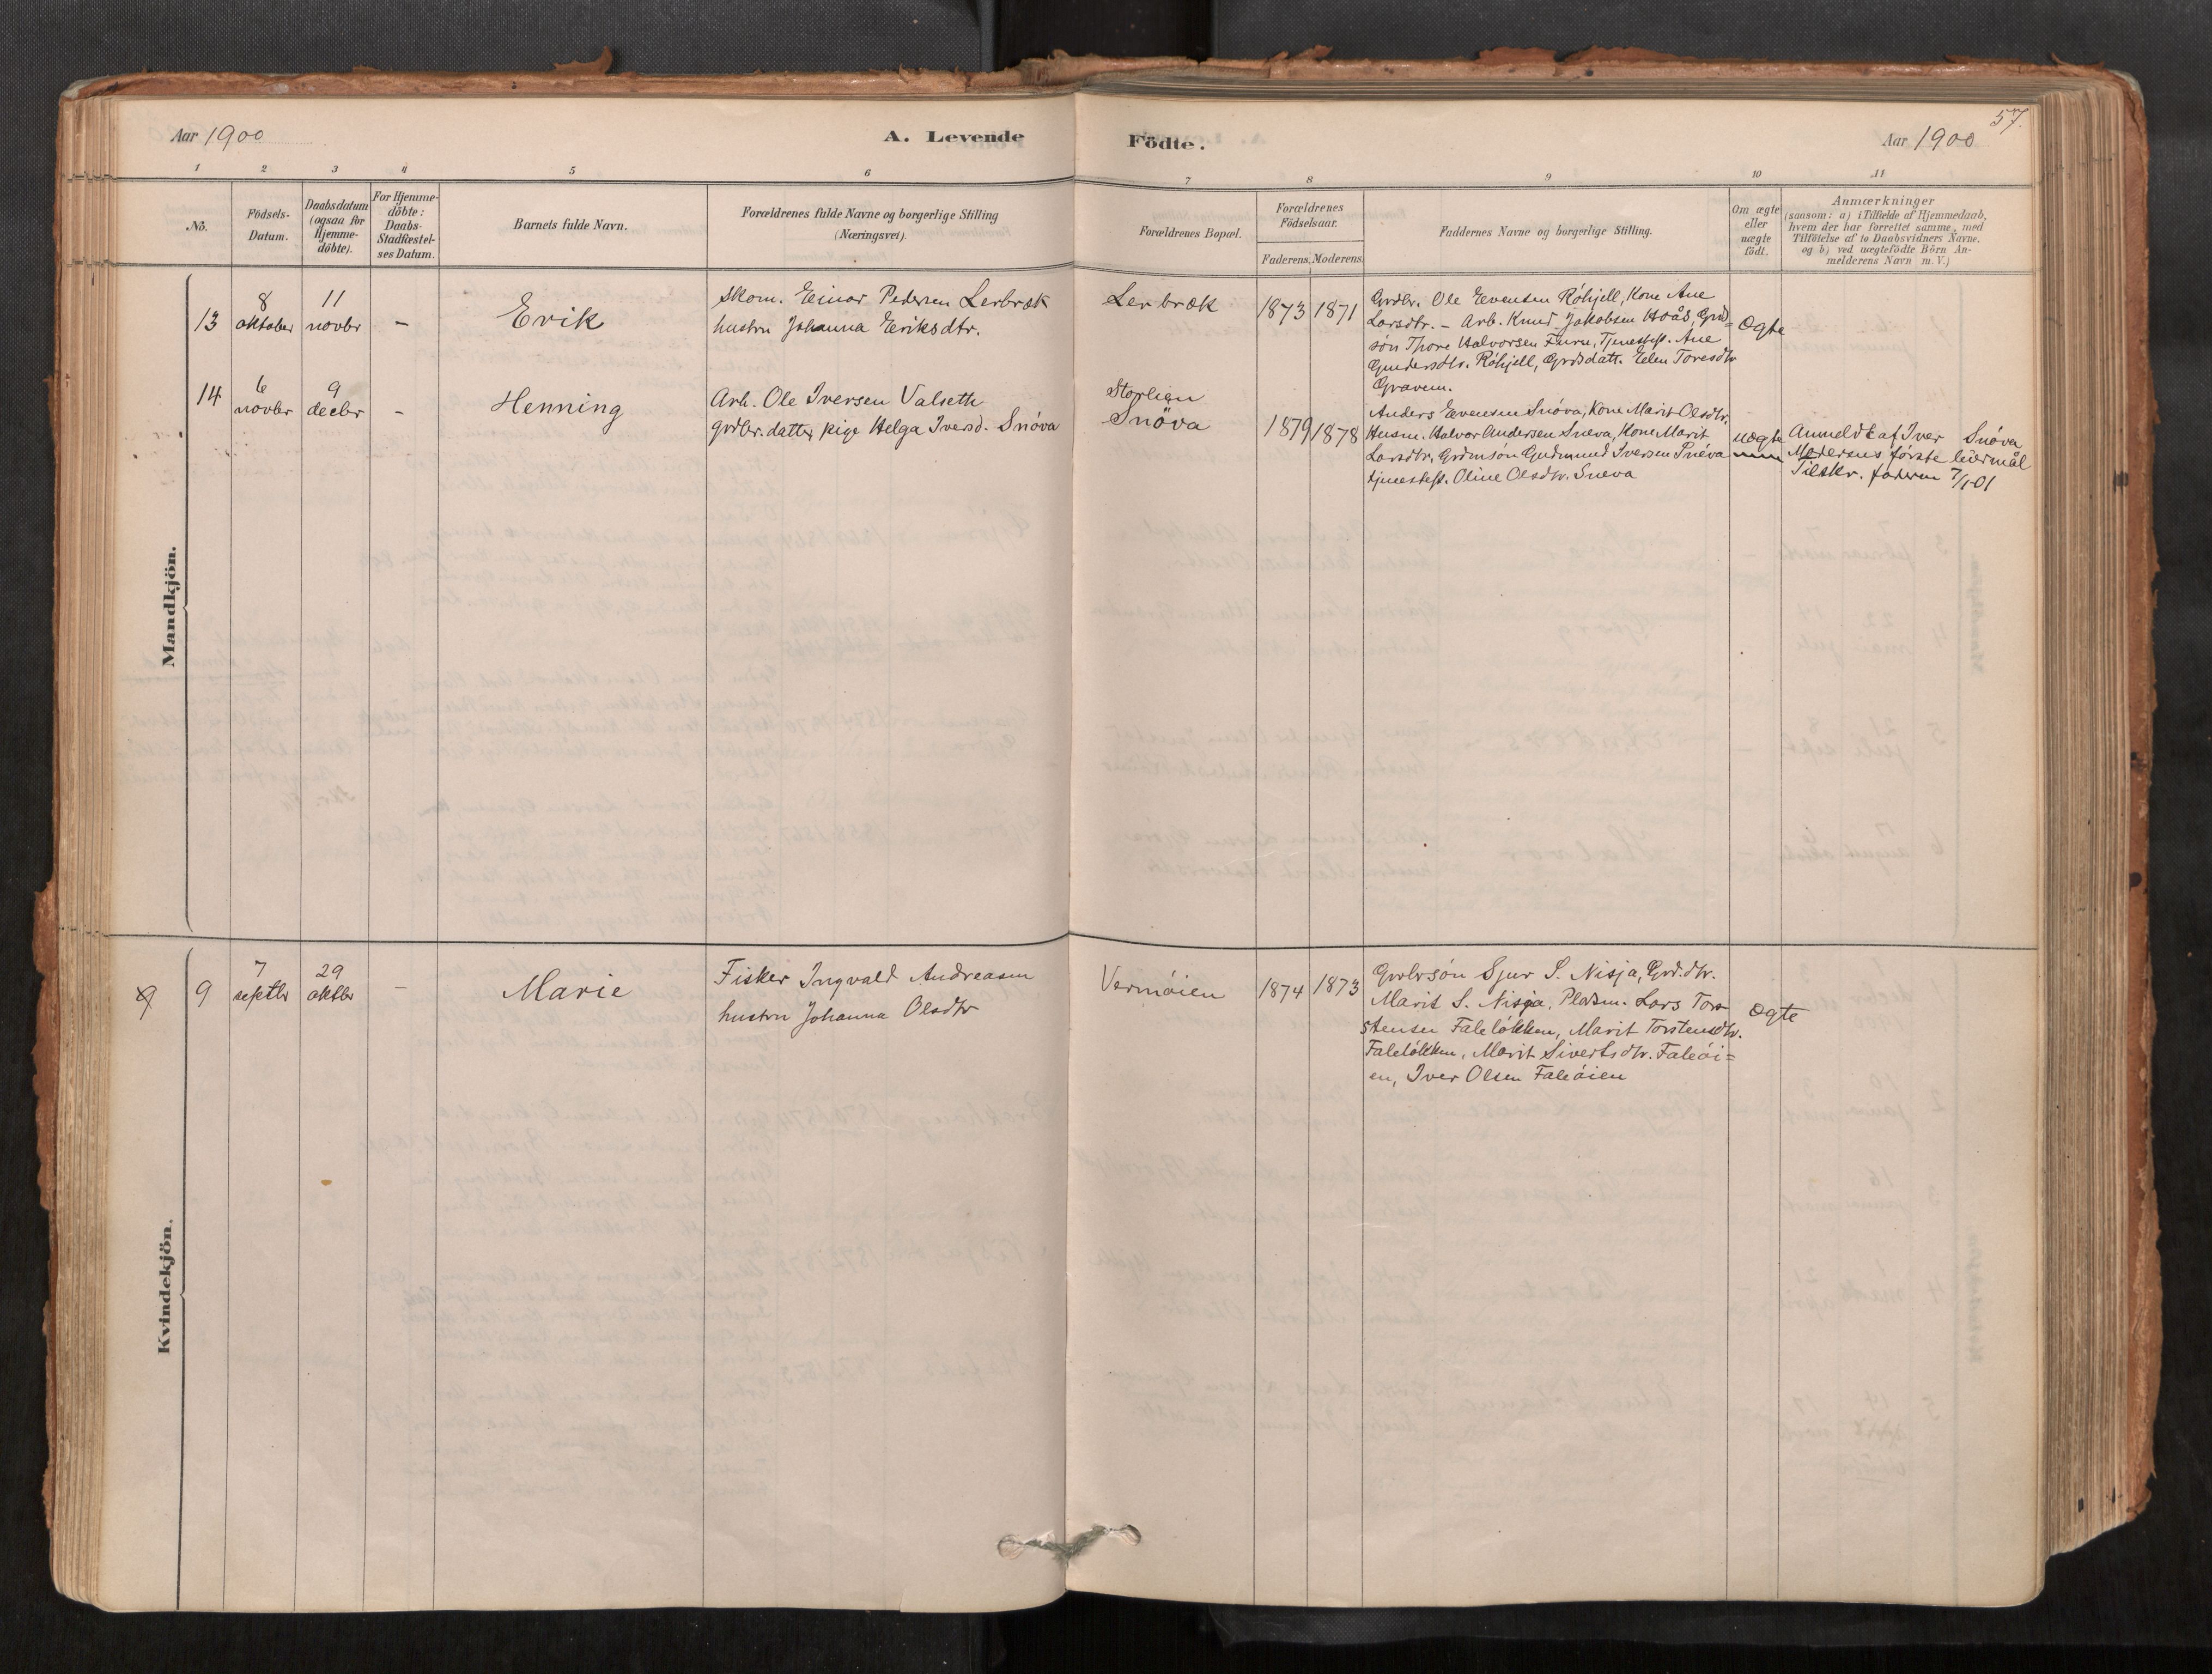 57.
Aar 1900
A. Levende
Födte.
Aar 1900
1 2 3 4 5 6 7 8 9 10 11
No.
Födsels-
Datum.
Daabsdatum
(ogsaa for
Hjemme-
döbte).
For Hjemme-
döbte:
Daabs-
Stadfæstel-
ses Datum.
Barnets fulde Navn.
Forældrenes fulde Navne og borgerlige Stilling
(Næringsvei).
Forældrenes Bopæl.
Forældrenes
Födselsaar.
Faderens. Moderens.
Faddernes Navne og borgerlige Stilling.
Om ægte
eller
uægte
födt.
Anmærkninger
(saasom: a) i Tilfælde af Hjemmedaab,
hvem der har forrettet samme, med
Tilföielse af to Daabsvidners Navne.
og b) ved uægtefödte Börn An-
melderens Navn m. V.)
Mandkjön.
13
8
oktober
11
novbr
–
Erik
Skom. Einar Pedersen Lerbræk
hustru Johanna Eriksdtr.
Lerbræk
1873 1871
Grdbr. Ole Evensen Röhjell, Kone Ane
Larsdtr. – Arb. Knud Jakobsen Hoås, Grd=
søn Thore Halvorsen Furu, Tjenestep. Ane
Gundersdtr. Röhjell, Grdsdatt. Eden Toresdtr
Gravem.
Ægte
14
6
novbr
9
decbr
–
Henning
Arb. Ole Iversen Valseth
grdbr.datter, pige Helga Iversd. Snöva
Storlien
Snöva
1879 1878
Anders Evensen Snöva, Kone Marit Olsdtr.
Husm. Halvor Andersen Sneva, Kone Marit
Larsdtr, Grdmsön Gudmund Iversen Snéva
tjenestep. Oline Olsdtr. Sneva
uægte
Anmeldt af Iver Snöva
Moderens förste leiermål
Tilskr. faderen 7/1-01
Kvindekjön.
9 9
7
septbr
29
oktbr
–
Marie
Fisker Ingvald Andreasen
hustru Johanna Olsdtr
Vermöien
1874 1873
Grdbrsön Sjur S. Nisja, Grd.dtr.
Marit S. Nisja, Pladsm. Lars Tor-
stensen Falelökken, Marit Torstensdtr.
Falelökken, Marit Sivertsdtr. Faleöi=
en, Iver Olsen Faleöien
Ægte